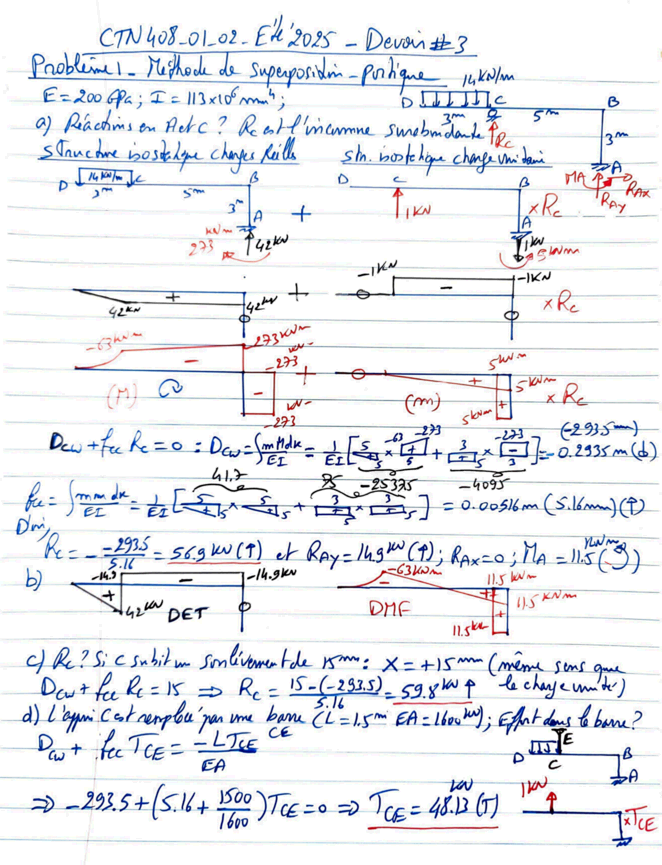 CTN408_01_02_Eté 2025 _ Devoir #3
Problème 1 _ Méthode de superposition _ portique
E = 200 GPa ; I = 113x10⁶ mm⁴ ;
14 KN/m
D C B
3m 5m
3m
A
MA RAX
RAY
Rc
a) Réactions en A et C ? Rc est l'inconnue surabondante
Structure isostatique charges réelles
Str. isostatique charge unitaire
14 KN/m
D C B
3m 5m
3m
A
KNm
273
42 KN
+
D C B
1KN
A
1KN
5KNm
x Rc
42KN + 42KN
+
-1KN - -1KN
x Rc
-63KNm
-273KNm
-273
KN-
-
(M)
-273
KN-
+
(m)
5KNm
5KNm
5KNm
+
x Rc
Dcw + fcc Rc = 0 : Dcw = ∫mMdx/EI = 1/EI [5 5 x -63 -273 5 + 3 5 x -273 3] = -0.2935m (↓)
(-293.5mm)
-25375
-4095
fcc = ∫mmdx/EI = 1/EI [5 5 x 5 5 + 3 5 x 3 5] = 0.00516m (5.16mm) (↑)
41.7
75
D'où,
Rc = - -293.5/5.16 = 56.9 KN (↑) et RAy = 14.9 KN (↑) ; RAx = 0 ; MA = 11.5 KNm
b)
-14.9 - -14.9KN
+
42KN DET
-63KNm
-
DMF
11.5 KNm
11.5 KNm
+
11.5
c) Rc ? Si C subit un soulèvement de 15mm : X = +15mm (même sens que
la charge unité)
Dcw + fcc Rc = 15 ⇒ Rc = 15-(-293.5)/5.16 = 59.8 KN ↑
d) L'appui C est remplacé par une barre CE (L = 1.5m EA = 1600 KN) ; Effort dans la barre ?
Dcw + fcc TCE = -L TCE/EA
E
D C B
A
⇒ -293.5 + (5.16 + 1500/1600) TCE = 0 ⇒ TCE = 48.13 KN (T)
1KN
x TCE